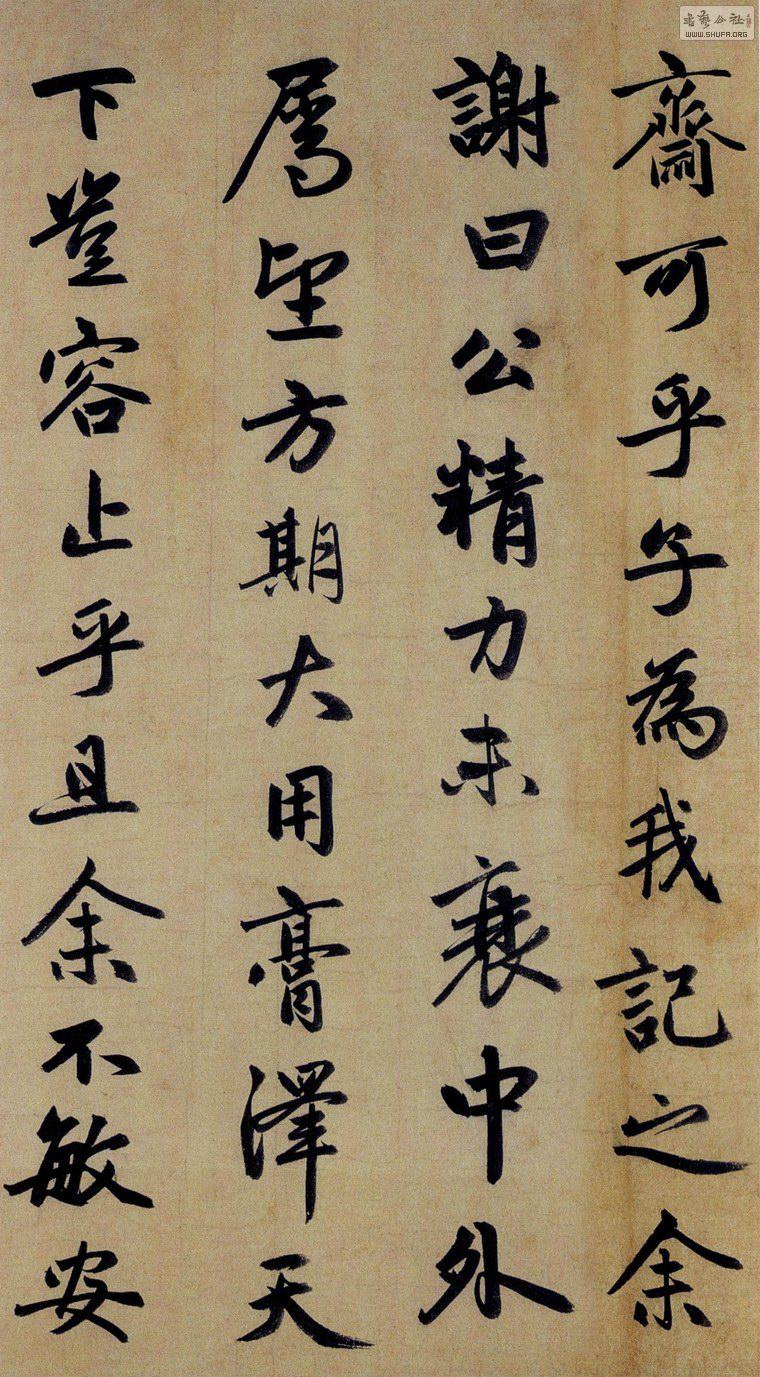 齋可乎子為我記之余
謝曰公精力未衰中外
属望方期大用膏澤天
下豈容止乎且余不敏安
WWW.SHUFA.ORG